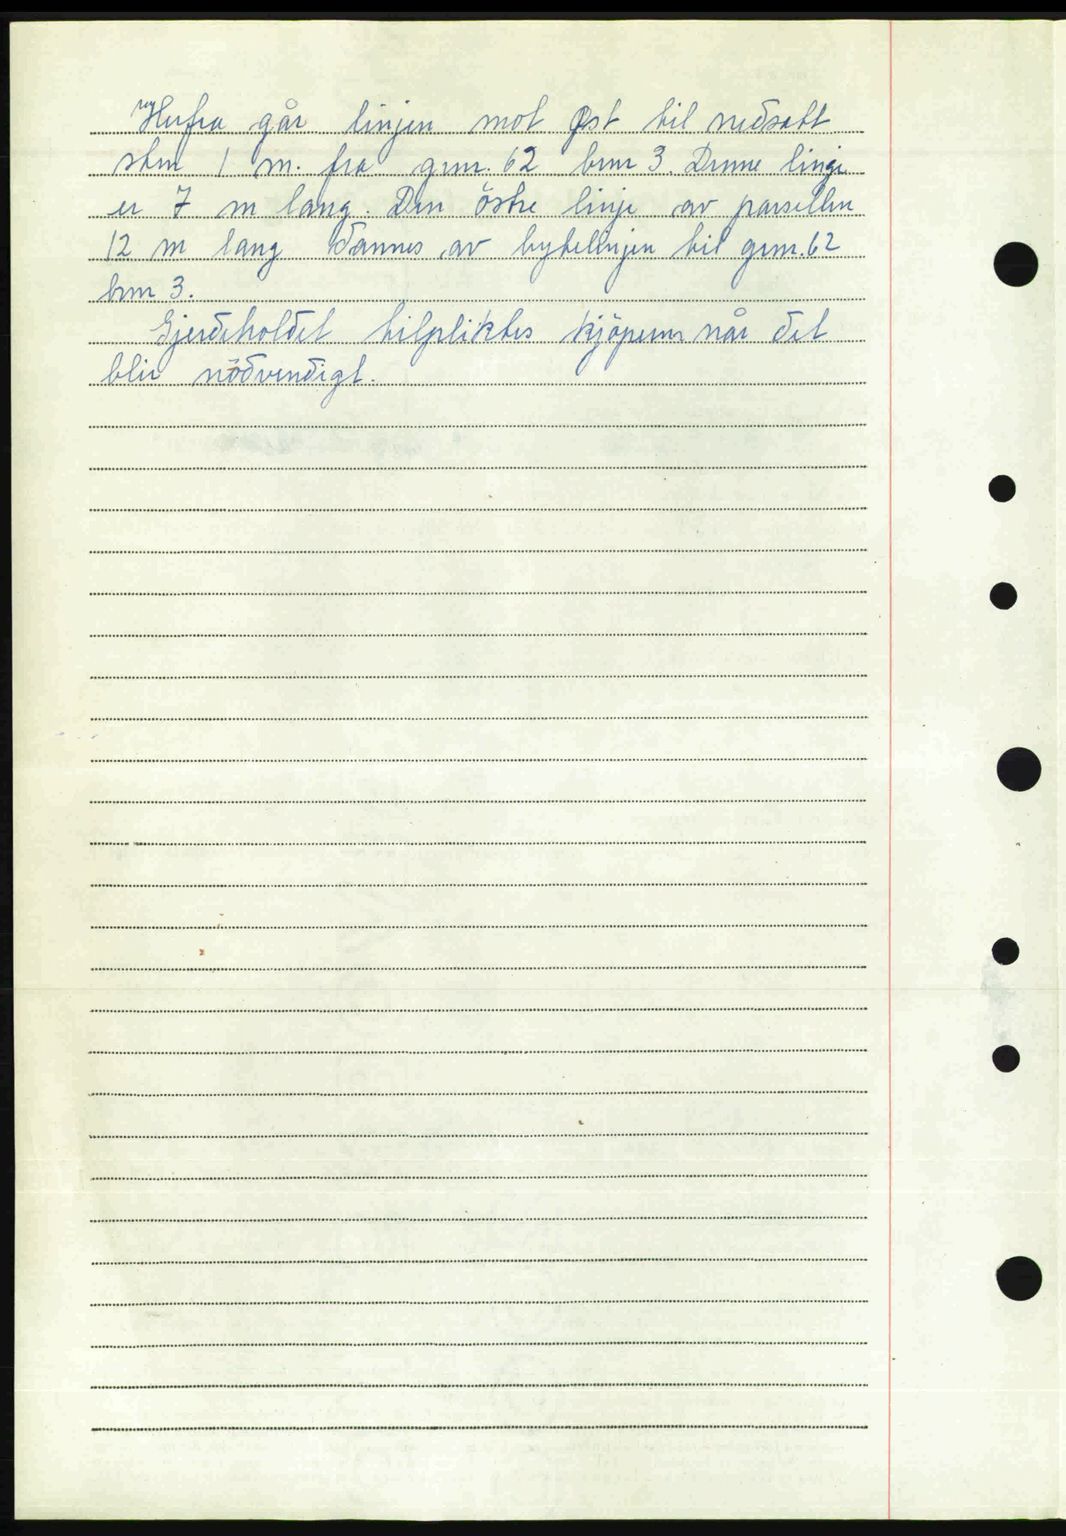 Herfra går linjen mot Øst til nedsatt
sten 1 m. fra grnr. 62 brnr 3. Denne linje
er 7 m lang. Den östre linje av parsellen
12 m lang dannes av bytelinjen til grnr. 62
brnr 3.
Gjerdeholdet tilpliktes kjöperen når det
blir nödvendigt.